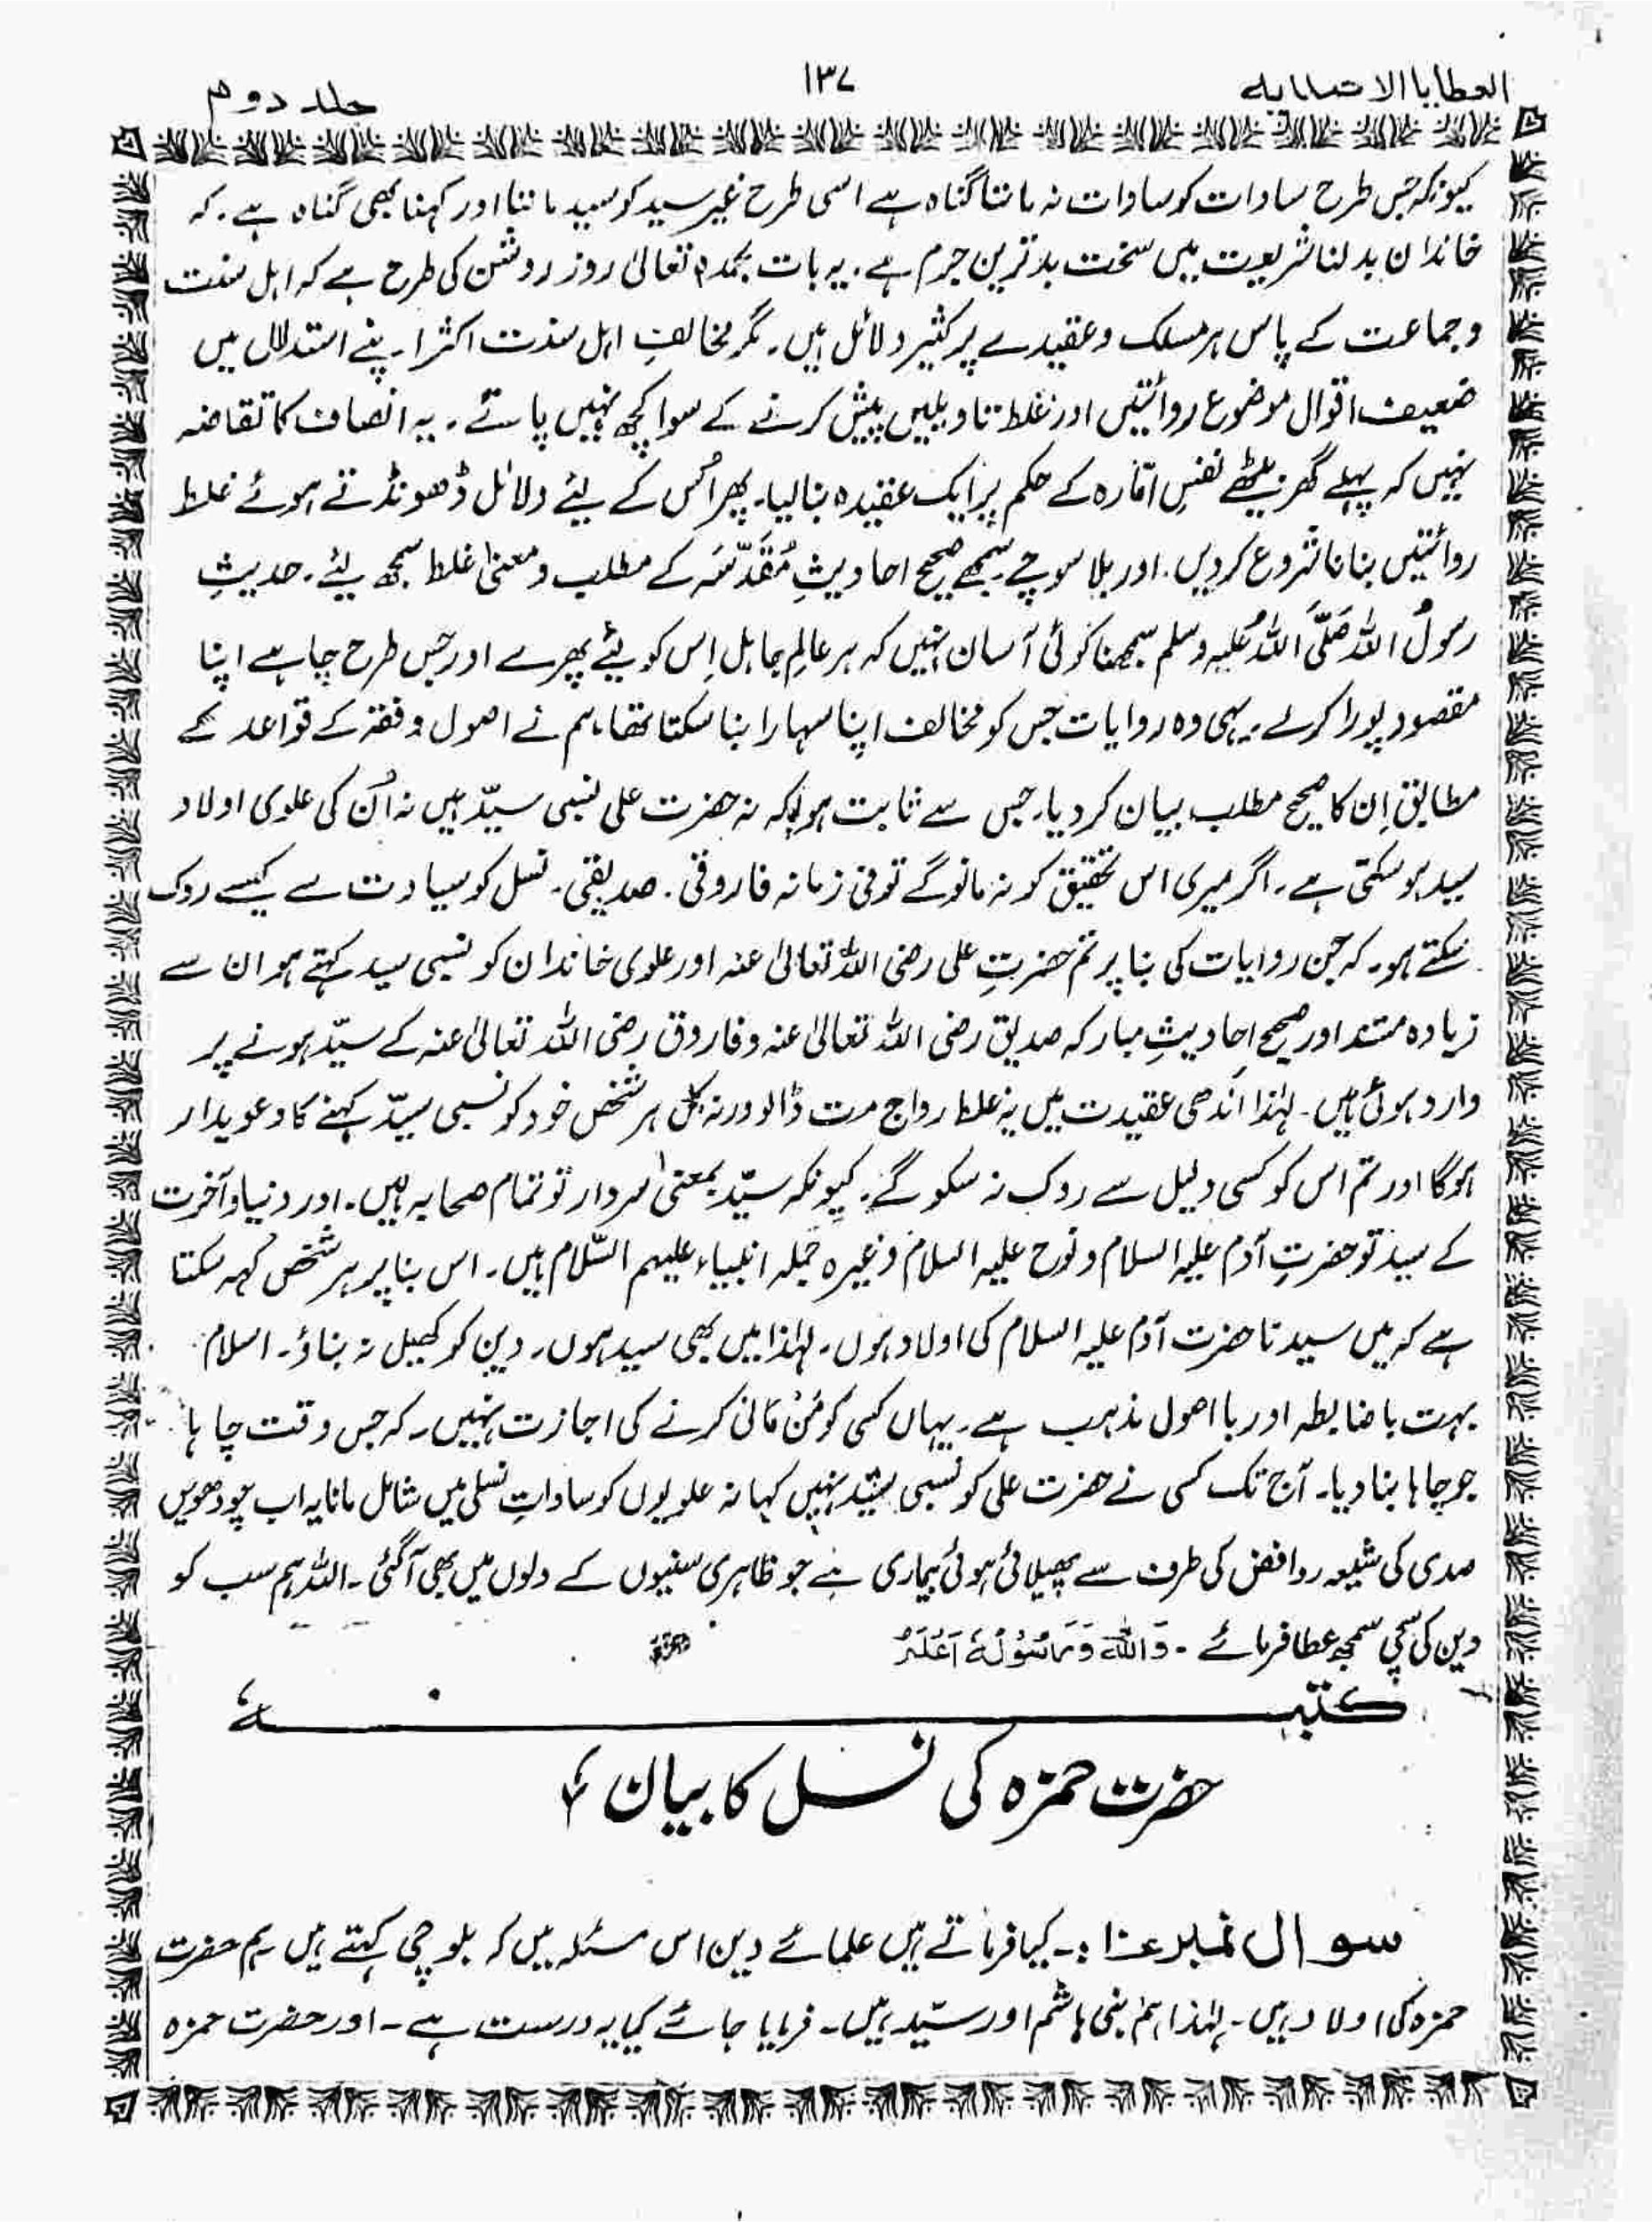 العطایا الاحمدیه
۱۳۷
جلد دوم
کیونکہ جس طرح سادات کو سادات نہ ماننا گناہ ہے اسی طرح غیر سید کو سید ماننا اور کہنا بھی گناہ ہے۔ کہ
خاندان بدلنا شریعت میں سخت بدترین جرم ہے۔ یہ بات بحمدہ تعالیٰ روز روشن کی طرح ہے کہ اہل سنت
وجماعت کے پاس ہر مسلک وعقیدے پر کثیر دلائل ہیں۔ مگر مخالفِ اہل سنت اکثر اپنے استدلال میں
ضعیف اقوال موضوع روائتیں اور غلط تاویلیں پیش کرنے کے سوا کچھ نہیں پاتے۔ یہ انصاف کا تقاضہ
نہیں کہ پہلے گھر بیٹھے نفسِ امّارہ کے حکم پر ایک عقیدہ بنالیا۔ پھر اُس کے لیئے دلائل ڈھونڈتے ہوئے غلط
روائتیں بنانا شروع کر دیں۔ اور بلا سوچے سمجھے صحیح احادیثِ مُقَدَّسَہ کے مطلب و معنیٰ غلط سمجھ لیئے۔ حدیثِ
رسولُ اللہ صَلَّی اللہُ علیہ وسلم سمجھنا کوئی آسان نہیں کہ ہر عالم جاہل اِس کو لیئے پھرے اور جس طرح چاہے اپنا
مقصود پورا کرلے۔ یہی وہ روایات جس کو مخالف اپنا سہارا بنا سکتا تھا، ہم نے اصول و فقہ کے قواعد کے
مطابق اِن کا صحیح مطلب بیان کر دیا۔ جس سے ثابت ہوا کہ نہ حضرت علی نسبی سیّد ہیں نہ اُن کی علوی اولاد
سید ہو سکتی ہے۔ اگر میری اس تحقیق کو نہ مانو گے تو فی زمانہ فاروقی۔ صدیقی۔ نسل کو سیادت سے کیسے روک
سکتے ہو۔ کہ جن روایات کی بنا پر تم حضرتِ علی رضی اللہ تعالیٰ عنہ اور علوی خاندان کو نسبی سید کہتے ہو ان سے
زیادہ مستند اور صحیح احادیثِ مبارکہ صدیق رضی اللہ تعالیٰ عنہ و فاروق رضی اللہ تعالیٰ عنہ کے سیّد ہونے پر
وارد ہوئی ہیں۔ لہٰذا اَندھی عقیدت میں یہ غلط رواج مت ڈالو ورنہ کل ہر شخص خود کو نسبی سیّد کہنے کا دعویدار
ہوگا اور تم اس کو کسی دلیل سے روک نہ سکو گے۔ کیونکہ سیّد بمعنیٰ سردار تو تمام صحابہ ہیں۔ اور دنیا وآخرت
کے سید تو حضرتِ آدم علیہ السلام و نوح علیہ السلام وغیرہ جُملہ انبیاء علیہم السّلام ہیں۔ اس بنا پر ہر شخص کہہ سکتا
ہے کہ میں سیدنا حضرت آدم علیہ السلام کی اولاد ہوں۔ لہٰذا میں بھی سید ہوں۔ دین کو کھیل نہ بناؤ۔ اسلام
بہت باضابطہ اور با اصول مذہب ہے۔ یہاں کسی کو مَنْ مَانی کرنے کی اجازت نہیں۔ کہ جس وقت چاہا
جو چاہا بنا دیا۔ آج تک کسی نے حضرت علی کو نسبی سیّد نہیں کہا نہ علویوں کو ساداتِ نسلی میں شامل مانا یہ اب چودھویں
صدی کی شیعہ روافض کی طرف سے پھیلائی ہوئی بیماری ہے جو ظاہری سنیوں کے دلوں میں بھی آگئی۔ اللہ ہم سب کو
دین کی سچی سمجھ عطا فرمائے۔ وَاللّٰہُ وَرَسُوْلُہٗ اَعْلَمُ
کتبہ
حضرت حمزہ کی نسل کا بیان
سوال نمبر ۱۰ :۔ کیا فرماتے ہیں علمائے دین اس مسئلہ میں کہ بلوچی کہتے ہیں ہم حضرت
حمزہ کی اولاد ہیں۔ لہٰذا ہم بنی ہاشم اور سیّد ہیں۔ فرمایا جائے کیا یہ درست ہے۔ اور حضرت حمزہ